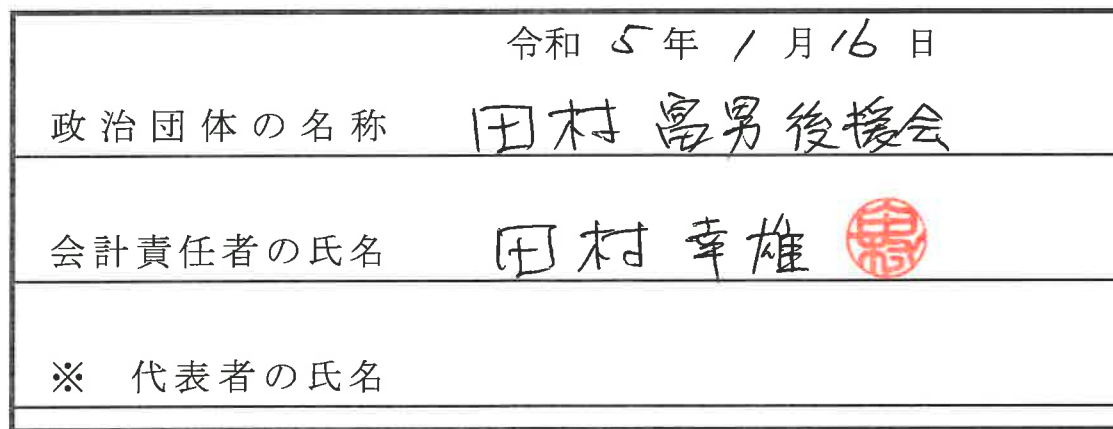 令和 5 年 1 月 16 日
政治団体の名称 田村冨男後援会
会計責任者の氏名 田村幸雄
※ 代表者の氏名